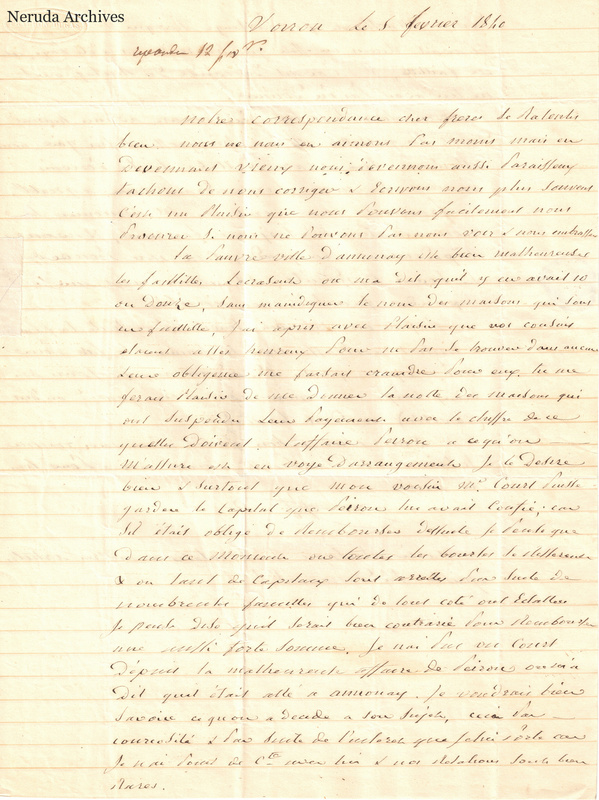 Neruda Archives
Voiron Le 8 février 1840
repondu 12 fer
notre correspondance cher frere se Ralentit
bien nous ne nous en aimons pas moins mais en
Devennant vieux nous devennons aussi Paraisseux
tachons de nous corriger & Ecrivons nous plus souvent
C'est un Plaisir que nous Pouvons facilement nous
Procurer si nous ne Pouvons Pas nous voir & nous embrasser
La Pauvre ville d'annonay est bien malheureuse
les faillittes Lecrasent on ma Dit quil y en avait 10
ou Douze, sans maindiquer le nom des maisons qui sont
en faillitte, J'ai apris avec Plaisir que vos cousins
étaient assés heureux Pour ne Pas se trouver dans aucune
Leur obligence me faisait craindre Pour eux, tu me
ferais Plaisir de me donner la notte des maisons qui
ont suspendu Leur Payement avec le chiffre de ce
quelles Doivent. L'affaire Peiron a ce qu'on
m'assure est en voye d'arrangement Je le Desire
bien & surtout que mon voisin Mr. Court Puisse
garder le Capital que Peiron lui avait Confié, car
Sil était obligé de Rembourser
Dans ce moment ou toutes les bourses se
& ou tant de Capitaux sont arrettés Par suite de
nombreuses faillittes qui de tout coté ont Eclattées
Je Pense Dis-je quil serait bien contrarié Pour Rembourser
une aussi forte somme, Je n'ai Pas vu Court
Dépuis la malheureuse affaire de Peiron on m'a
Dit quil était allé a annonay. Je voudrais bien
Savoir ce quon a décidé a son sujet, ceci Par
couriosité & Par suite de l'interet que Je lui Porte car
Je n'ai Point de Cte avec lui & nos Relations sont bien
Rares.